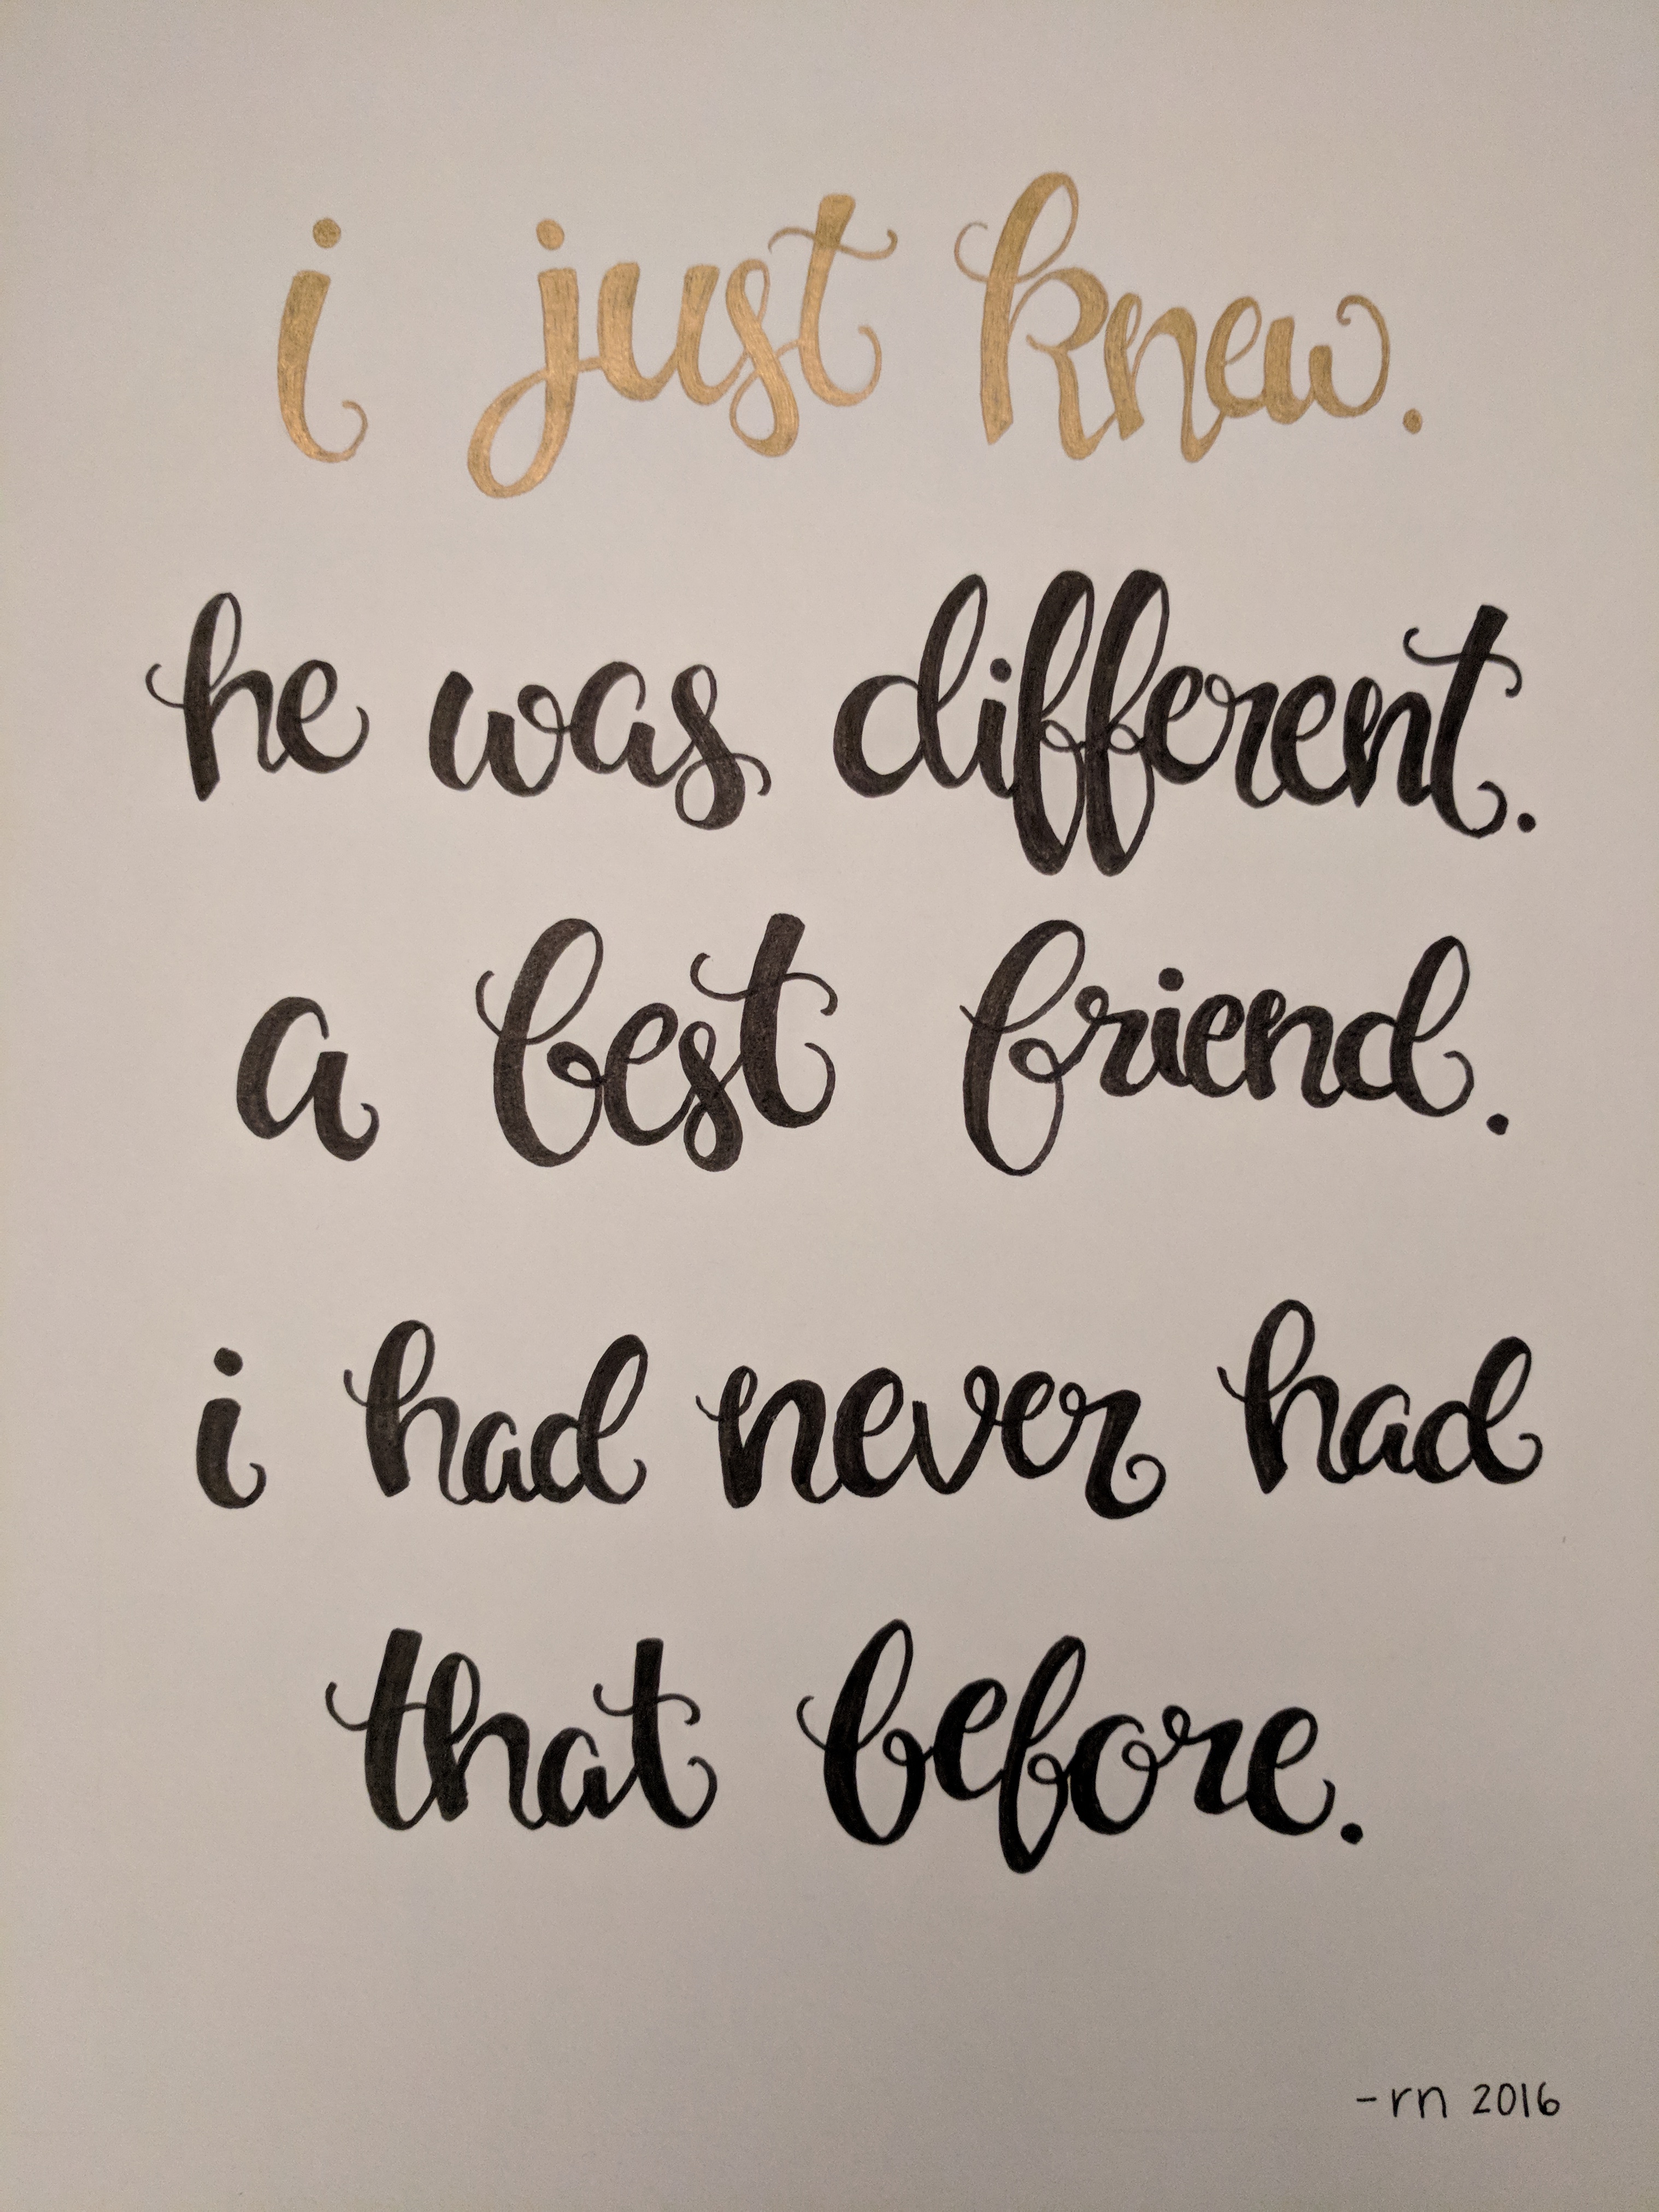 i just knew.
he was different.
a best friend.
i had never had
that before.
-rn 2016